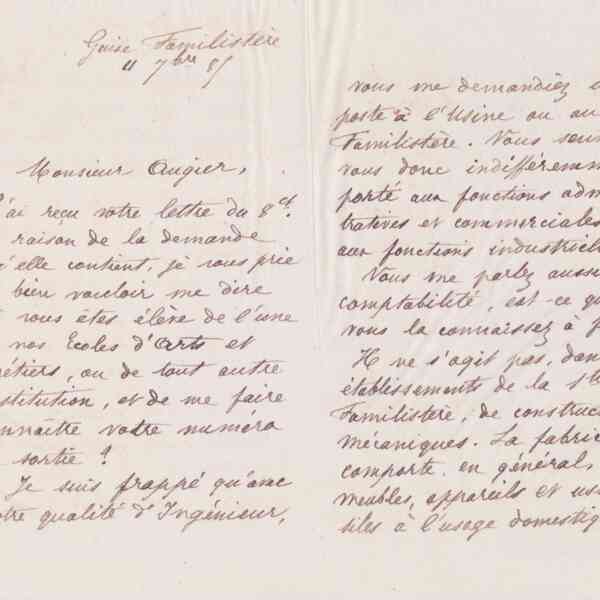 Guise Familistère
11 7bre 85
Monsieur Augier,
'ai reçu votre lettre du 8 ct.
raison de la demande
'elle contient, je vous prie
bien vouloir me dire
vous êtes élève de l'une
nos Ecoles d'Arts et
étiers, ou de tout autre
stitution, et de me faire
nnaître votre numéro
sortie ?
Je suis frappé qu'avec
otre qualité d'Ingénieur,
vous me demandiez u
poste à l'Usine ou au
Familistère. Vous sen
vous donc indifféremm
porté aux fonctions adm
tratives et commerciales
aux fonctions industriell
Vous me parlez aussi
comptabilité, est-ce qu
vous la connaissez à f
Il ne s'agit pas, dan
établissements de la Sté
Familistère, de construc
mécaniques. La fabric
comporte, en général,
meubles, appareils et us
siles à l'usage domestiq